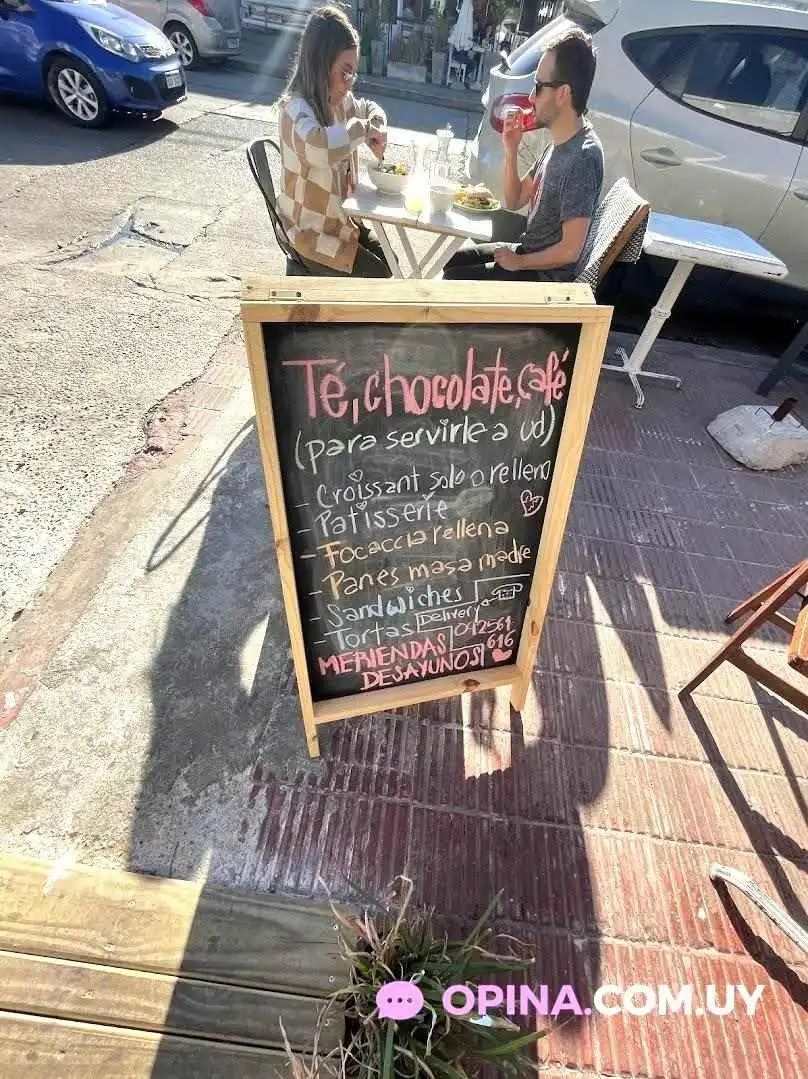 Té, chocolate, café
(para servirle a ud)
- Croissant solo o relleno
- Patisserie
- Focaccia rellena
- Panes masa madre
- Sandwiches
- Tortas
Delivery
092561
616
MERIENDAS
DESAYUNOS
OPINA.COM.UY